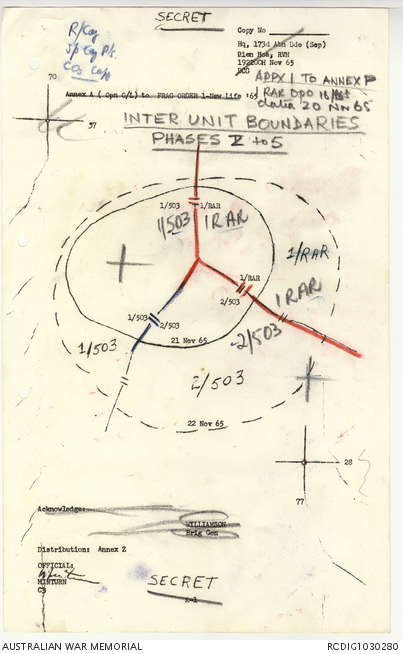 SECRET
R/Coy
Copy No
Hq, 173d Abn Bde (Sep)
Bien Hoa, RVN
192200H Nov 65
APPX 1 TO ANNEX
Annex A ( Opn O/L) to FRAG ORDER 1-New Life -65
RAR OPO
dated 20 Nov 65
70
37
INTER UNIT BOUNDARIES
PHASES to 5
1/503 1/RAR
1/503 1RAR
1/RAR
1/RAR
2/503
1RAR
1/503
2/503
2/503
1/503
21 Nov 65
2/503
22 Nov 65
28
77
Acknowledge:
WILLIAMSON
Brig Gen
Distribution: Annex Z
OFFICIAL:
MINTURN
C3
SECRET
AUSTRALIAN WAR MEMORIAL
RCDIG1030280